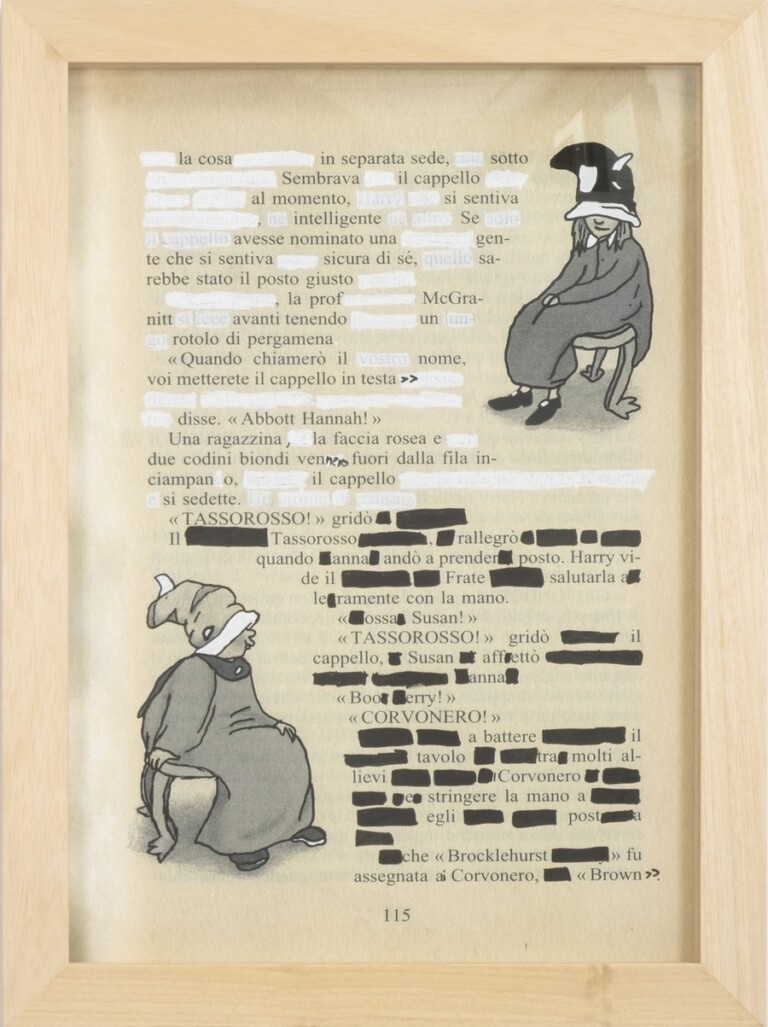 la cosa in separata sede, sotto
Sembrava il cappello
al momento, si sentiva
, intelligente Se
avesse nominato una gen-
te che si sentiva sicura di sé, quello sa-
rebbe stato il posto giusto
, la prof McGra-
nitt avanti tenendo un
rotolo di pergamena
«Quando chiamerò il vostro nome,
voi metterete il cappello in testa »
disse. «Abbott Hannah!»
Una ragazzina, la faccia rosea e
due codini biondi vennero fuori dalla fila in-
ciampan o, il cappello
si sedette.
«TASSOROSSO!» gridò
Il Tassorosso , rallegrò
quando anna andò a prender posto. Harry vi-
de il Frate salutarla a
le ramente con la mano.
« ossa Susan!»
«TASSOROSSO!» gridò il
cappello, Susan affrettò
anna
«Boo erry!»
«CORVONERO!»
a battere il
tavolo tra molti al-
lievi Corvonero
stringere la mano a
egli post a
che «Brocklehurst » fu
assegnata ai Corvonero, «Brown »
115